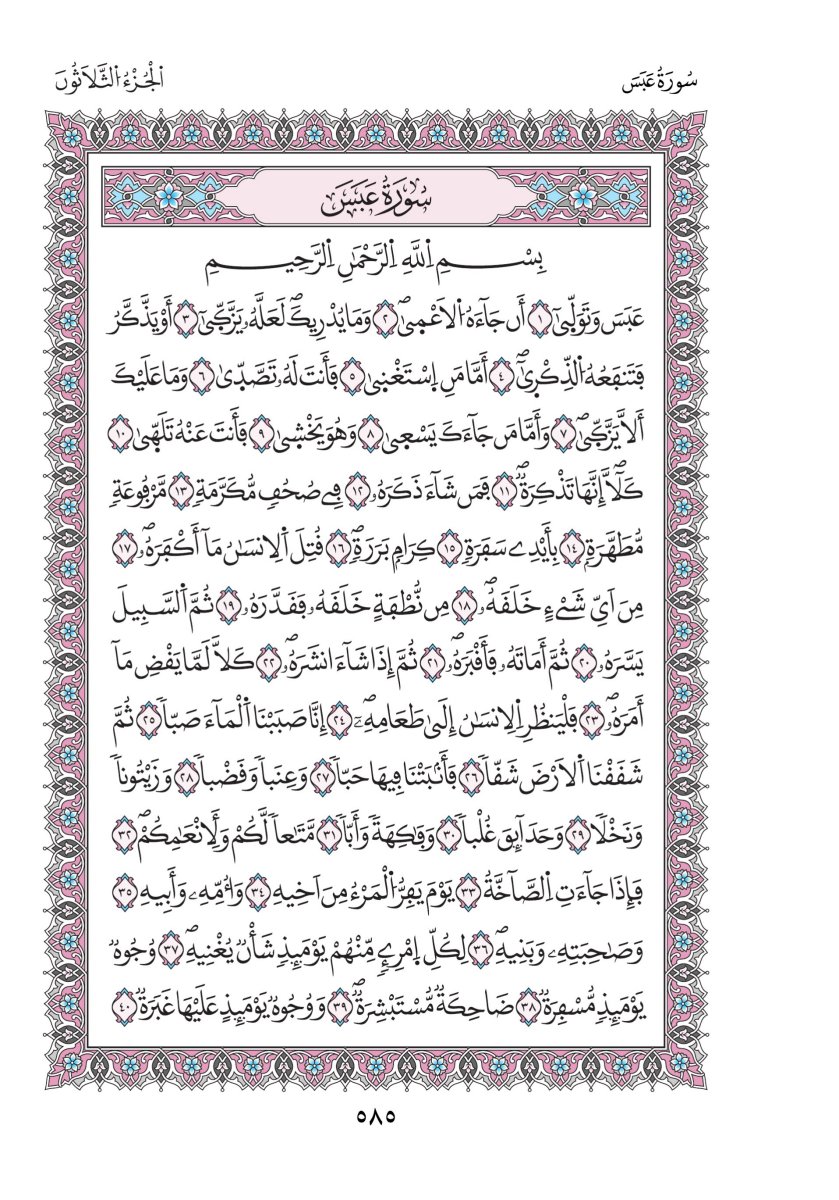 سُورَةُ عَبَسَ
اَلْجُزْءُ اُلثَّلَاثُونَ
سُورَةُ عَبَسَ
بِسْمِ اِللَّهِ اِلرَّحْمَٰنِ اِلرَّحِيمِ
عَبَسَ وَتَوَلّ۪يٰٓ ١ أَن جَآءَهُ اُلَاعْم۪يٰۖ ٢ وَمَا يُدْرِيكَۖ لَعَلَّهُۥ يَزَّكّ۪يٰٓ ٣ أَوْ يَذَّكَّرُ
فَتَنفَعُهُ اُلذِّكْر۪يٰٓۖ ٤ أَمَّا مَنِ اِسْتَغْن۪يٰ ٥ فَأَنتَ لَهُۥ تَصَّدّ۪يٰ ٦ وَمَا عَلَيْكَ
أَلَّا يَزَّكّ۪يٰۖ ٧ وَأَمَّا مَن جَآءَكَ يَسْع۪يٰ ٨ وَهُوَ يَخْش۪يٰ ٩ فَأَنتَ عَنْهُ تَلَهّ۪يٰ ١٠
كَلَّآۖ إِنَّهَا تَذْكِرَةٞۖ ١١ فَمَن شَآءَ ذَكَرَهُۥ ١٢ فِے صُحُفٖ مُّكَرَّمَةٖ ١٣ مَّرْفُوعَةٖ
مُّطَهَّرَةِۢ ١٤ بِأَيْدِے سَفَرَةٖ ١٥ كِرَامِۢ بَرَرَةٖۖ ١٦ قُتِلَ اَلِانسَٰنُ مَآ أَكْفَرَهُۥۖ ١٧
مِنَ اَيِّ شَےْءٍ خَلَقَهُۥۖ ١٨ مِن نُّطْفَةٍ خَلَقَهُۥ فَقَدَّرَهُۥ ١٩ ثُمَّ اَلسَّبِيلَ
يَسَّرَهُۥ ٢٠ ثُمَّ أَمَاتَهُۥ فَأَقْبَرَهُۥۖ ٢١ ثُمَّ إِذَا شَآءَ انشَرَهُۥۖ ٢٢ كَلَّا لَمَّا يَقْضِ مَآ
أَمَرَهُۥۖ ٢٣ فَلْيَنظُرِ اِلِانسَٰنُ إِلَيٰ طَعَامِهِۦٓۖ ٢٤ إِنَّا صَبَبْنَا اَلْمَآءَ صَبّاٗ ٢٥ ثُمَّ
شَقَقْنَا اَلَارْضَ شَقّاٗ ٢٦ فَأَنۢبَتْنَا فِيهَا حَبّاٗ ٢٧ وَعِنَباٗ وَقَضْباٗ ٢٨ وَزَيْتُوناٗ
وَنَخْلاٗ ٢٩ وَحَدَآئِقَ غُلْباٗ ٣٠ وَفَٰكِهَةٗ وَأَبّاٗ ٣١ مَّتَٰعاٗ لَّكُمْ وَلِأَنْعَٰمِكُمْۖ ٣٢
فَإِذَا جَآءَتِ اِلصَّآخَّةُ ٣٣ يَوْمَ يَفِرُّ اُلْمَرْءُ مِنَ اَخِيهِ ٣٤ وَأُمِّهِۦ وَأَبِيهِ ٣٥
وَصَٰحِبَتِهِۦ وَبَنِيهِۖ ٣٦ لِكُلِّ اِمْرِےٕٖ مِّنْهُمْ يَوْمَئِذٖ شَأْنٞ يُغْنِيهِۖ ٣٧ وُجُوهٞ
يَوْمَئِذٖ مُّسْفِرَةٞ ٣٨ ضَاحِكَةٞ مُّسْتَبْشِرَةٞۖ ٣٩ وَوُجُوهٞ يَوْمَئِذٍ عَلَيْهَا غَبَرَةٞ ٤٠
٥٨٥